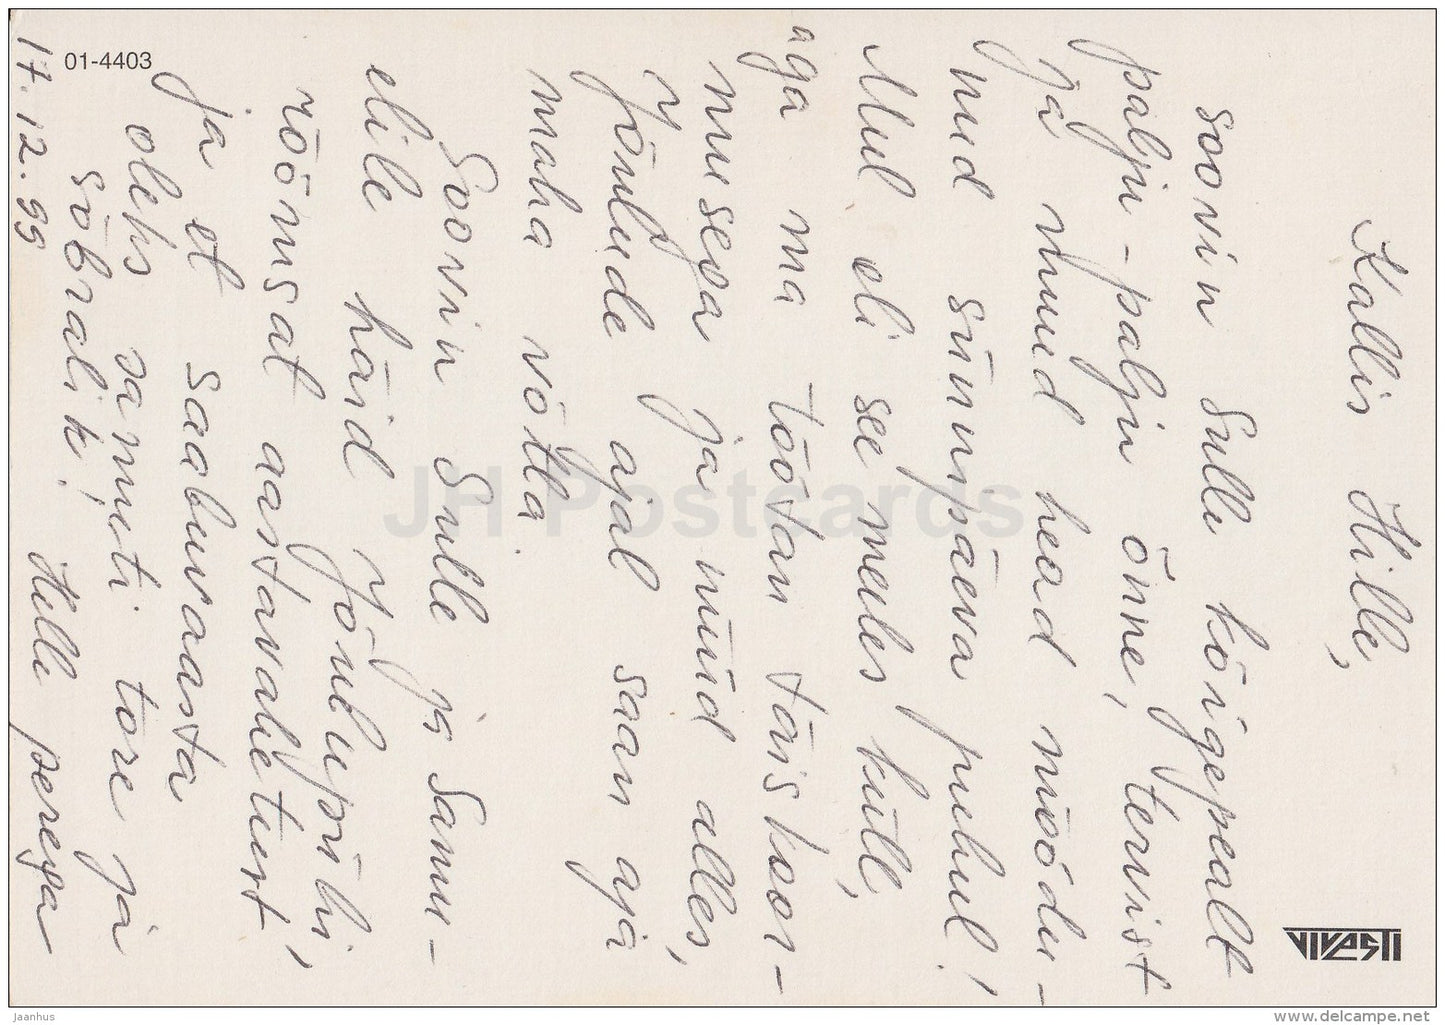 Kallis Hille,
soovin Sulle kõigepealt
palju-palju õnne, tervist
ja muud head möödu-
nud sünnipäeva puhul!
Mul oli see meeles küll,
aga ma töötan täiskoor-
musega ja nüüd alles,
Jõulude ajal saan aja
maha võtta
Soovin Sulle ja Samu-
elile häid Jõulupühi,
rõõmsat aastavahetust
ja et saabuvaasta
oleks samuti tore ja
sõbralik! Helle perega
17.12.99
01-4403
VIVASTI
JH Postcards
jaanhus
www.delcampe.net